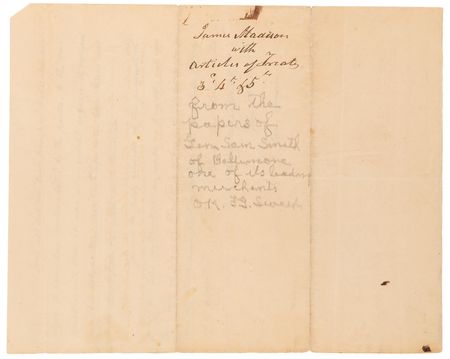 James Madison
with
Articles of Treaty
3d 4th & 5th
From the
papers of
Gen Sam Smith
of Baltimore
one of its leading
merchants
O.K.